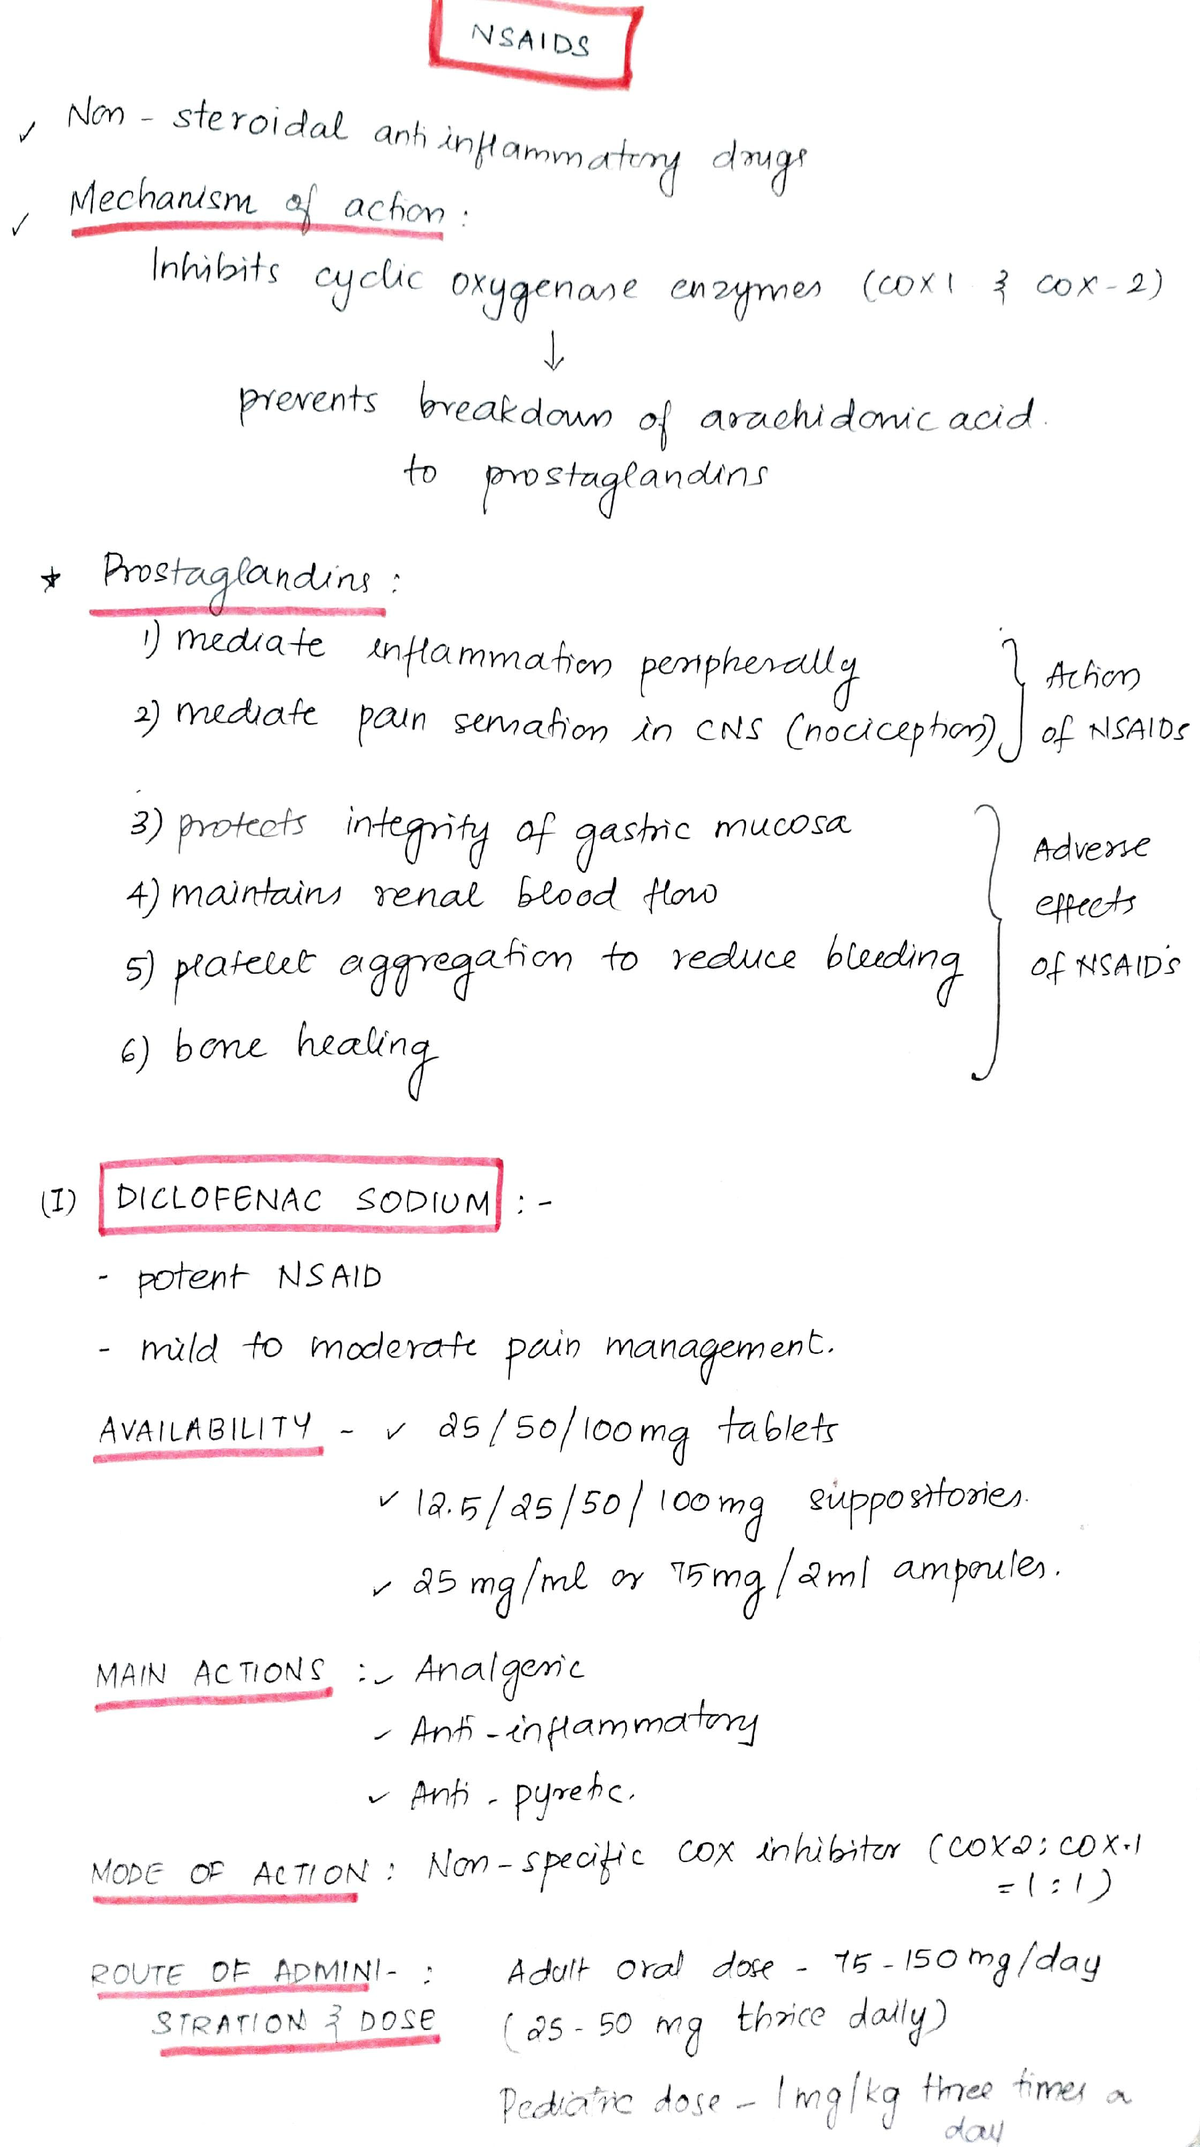 NSAIDS
✓ Non - steroidal anti inflammatory drugs
✓ Mechanism of action :
Inhibits cyclic oxygenase enzymes (COX 1 & COX-2)
↓
prevents breakdown of arachidonic acid.
to prostaglandins
* Prostaglandins :
1) mediate inflammation peripherally
2) mediate pain sensation in CNS (nociception)
} Action
of NSAIDs
3) protects integrity of gastric mucosa
4) maintains renal blood flow
5) platelet aggregation to reduce bleeding
6) bone healing
} Adverse
effects
of NSAID's
(I) DICLOFENAC SODIUM : -
- potent NSAID
- mild to moderate pain management.
AVAILABILITY - ✓ 25/50/100mg tablets
✓ 12.5/25/50/100mg suppositories.
✓ 25 mg/ml or 75mg/2ml ampoules.
MAIN ACTIONS : ✓ Analgesic
✓ Anti - inflammatory
✓ Anti - pyretic.
MODE OF ACTION : Non - specific COX inhibitor (COX2 : COX-1
= 1 : 1)
ROUTE OF ADMINI- : Adult oral dose - 75 - 150 mg/day
STRATION & DOSE (25 - 50 mg thrice daily)
Pediatric dose - 1mg/kg three times a
day